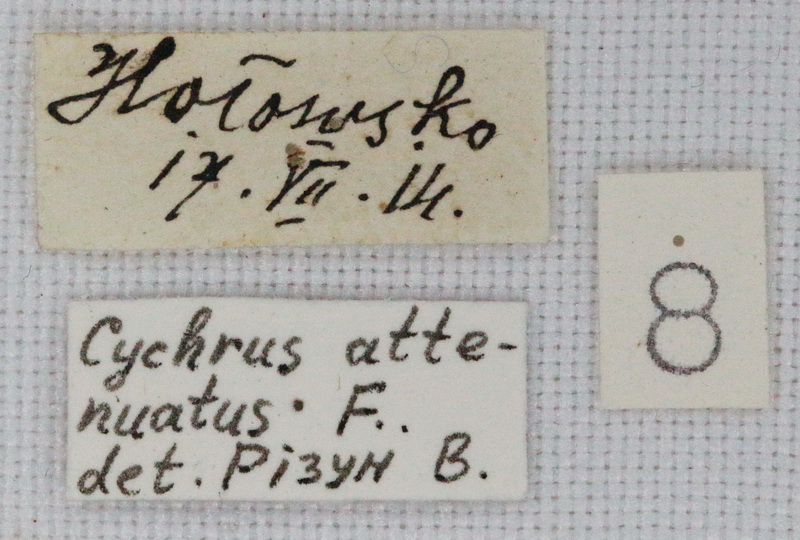 Hołowsko
17. VII. 14.
Cychrus atte-
nuatus F..
det. Різун В.
8